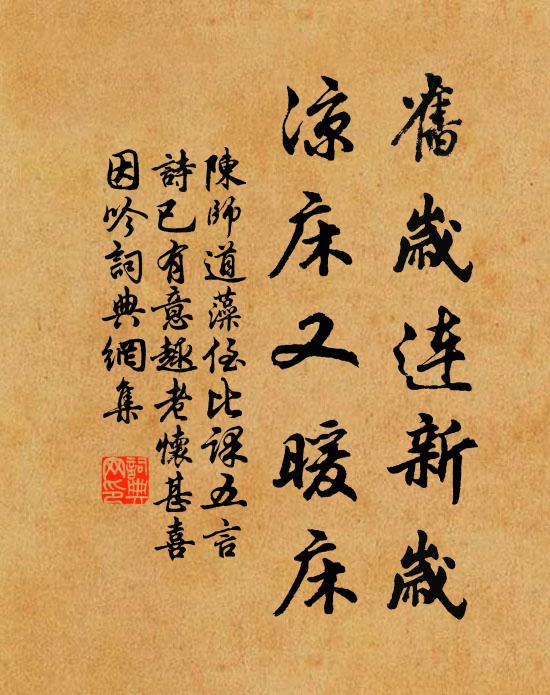 舊歲連新歲
涼床又暖床
陳師道藻侄比課五言
詩已有意趣老懷甚喜
因吟詞典網集
詞典
网印